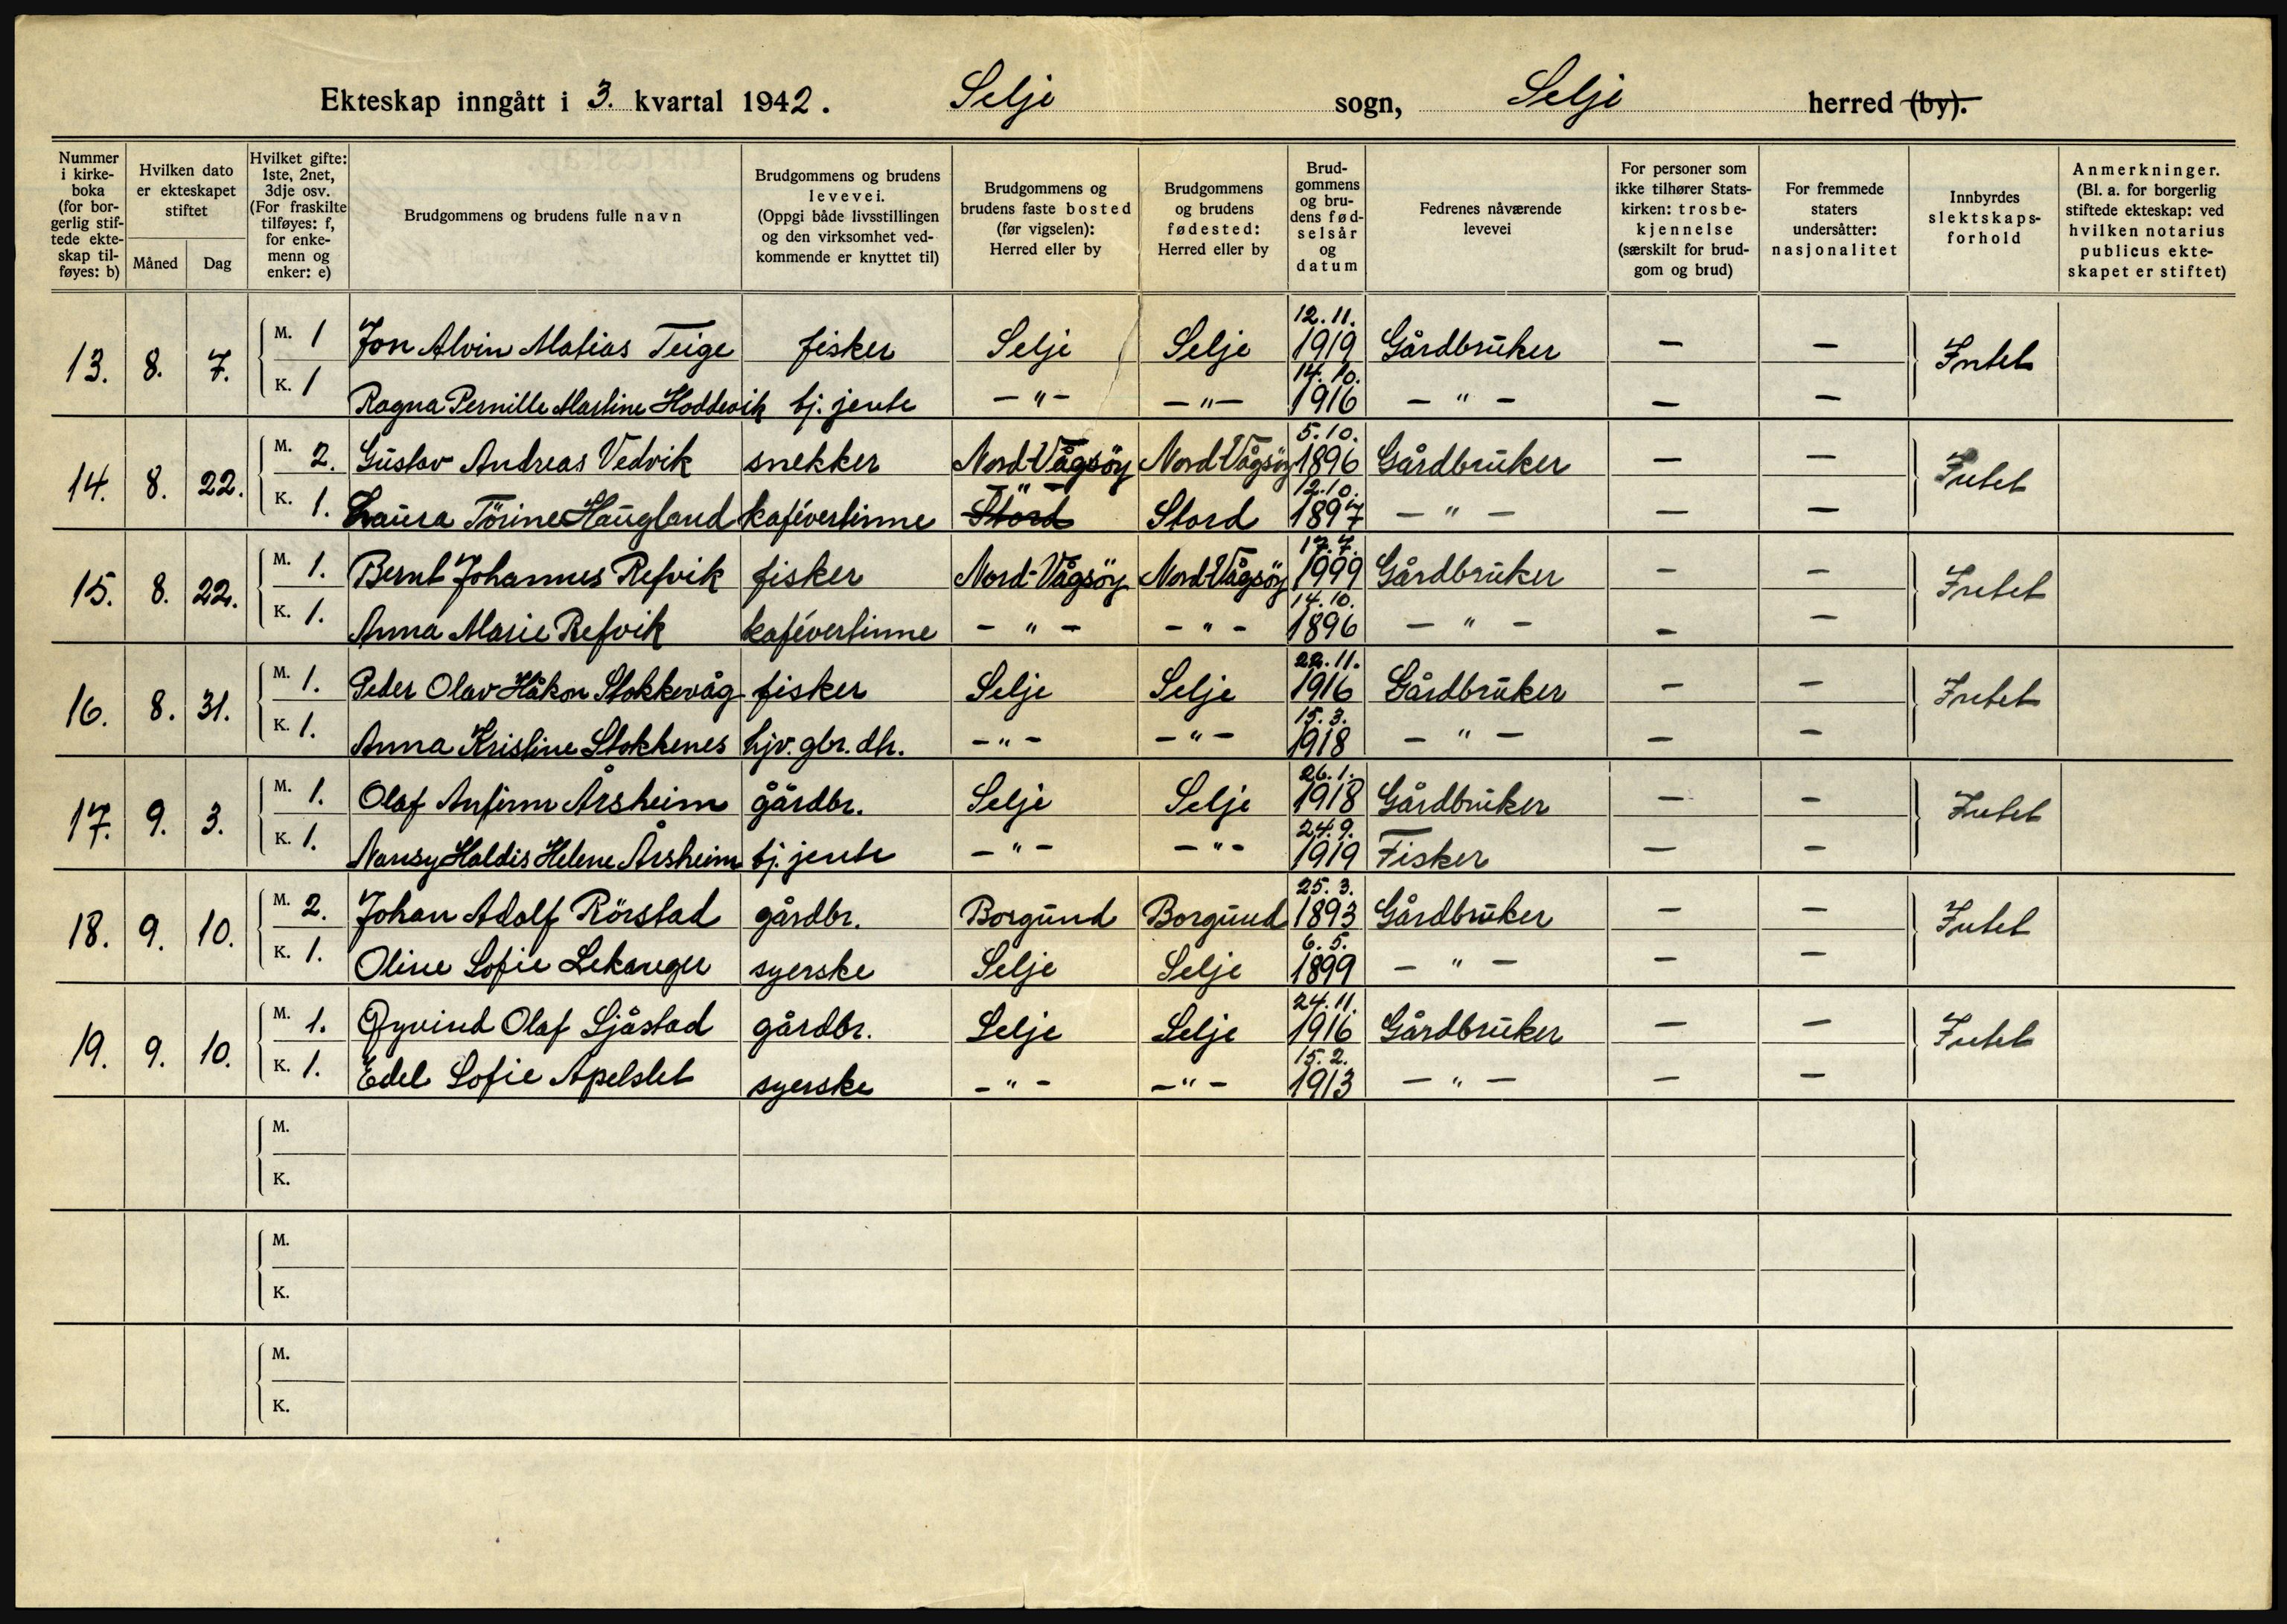 Ekteskap inngått i 3. kvartal 1942. Selje sogn, Selje herred (by).
Nummer i kirke-boka (for bor-gerlig stif-tede ekte-skap til-føyes: b)
Hvilken dato er ekteskapet stiftet
Måned
Dag
Hvilket gifte: 1ste, 2net, 3dje osv. (For fraskilte tilføyes: f, for enke-menn og enker: e)
Brudgommens og brudens fulle navn
Brudgommens og brudens levevei. (Oppgi både livsstillingen og den virksomhet ved-kommende er knyttet til)
Brudgommens og brudens faste bosted (før vigselen): Herred eller by
Brudgommens og brudens fødested: Herred eller by
Brud-gommens og bru-dens fød-selsår og datum
Fedrenes nåværende levevei
For personer som ikke tilhører Stats-kirken: trosbe-kjennelse (særskilt for brud-gom og brud)
For fremmede staters undersåtter: nasjonalitet
Innbyrdes slektskaps-forhold
Anmerkninger. (Bl. a. for borgerlig stiftede ekteskap: ved hvilken notarius publicus ekte-skapet er stiftet)
13. 8. 7. M. 1 Jon Alvin Matias Teige fisker Selje Selje 12.11. 1919 Gårdbruker — — Intet
K. 1 Ragna Pernille Martine Hoddevik tj. jente — " — — " — 14.10. 1916 — " — — —
14. 8. 22. M. 2. Gustav Andreas Vedvik snekker Nord-Vågsöy Nord-Vågsöy 5.10. 1896 Gårdbruker — — Intet
K. 1. Laura Törine Haugland kafévertinne — " — Stord Stord 12.10. 1897 — " — — —
15. 8. 22. M. 1. Bernt Johannes Refvik fisker Nord-Vågsöy Nord-Vågsöy 17.7. 1999 Gårdbruker — — Intet
K. 1. Anna Marie Refvik kafévertinne — " — — " — 14.10. 1896 — " — — —
16. 8. 31. M. 1. Peder Olav Håkon Stokkevåg fisker Selje Selje 22.11. 1916 Gårdbruker — — Intet
K. 1. Anna Kristine Stokkenes hjv. gbr. dtr. — " — — " — 15.3. 1918 — " — — —
17. 9. 3. M. 1. Olaf Anfinn Årsheim gårdbr. Selje Selje 26.1. 1918 Gårdbruker — — Intet
K. 1. Nansy Haldis Helene Årsheim tj. jente — " — — " — 24.9. 1919 Fisker — —
18. 9. 10. M. 2. Johan Adolf Rörstad gårdbr. Borgund Borgund 25.3. 1893 Gårdbruker — — Intet
K. 1. Oline Sofie Lekanger syerske Selje Selje 6.5. 1899 — " — — —
19. 9. 10. M. 1. Øyvind Olaf Sjåstad gårdbr. Selje Selje 24.11. 1916 Gårdbruker — — Intet
K. 1. Edel Sofie Apelset syerske — " — — " — 15.2. 1913 — " — — —
M.
K.
M.
K.
M.
K.